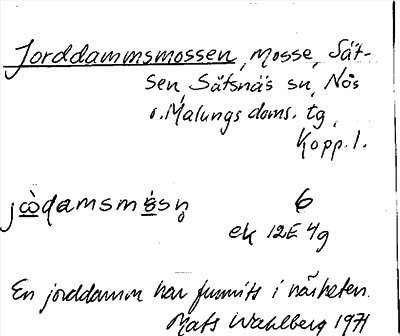 Jorddammsmossen, mosse, Sät-
sen, Sätsnäs sn, Nås
o. Malungs doms. tg,
Kopp. l.
jὼdamsmȯsn̥ 6
ek 12E 4g
En jorddamm har funnits i närheten.
Mats Wahlberg 1971